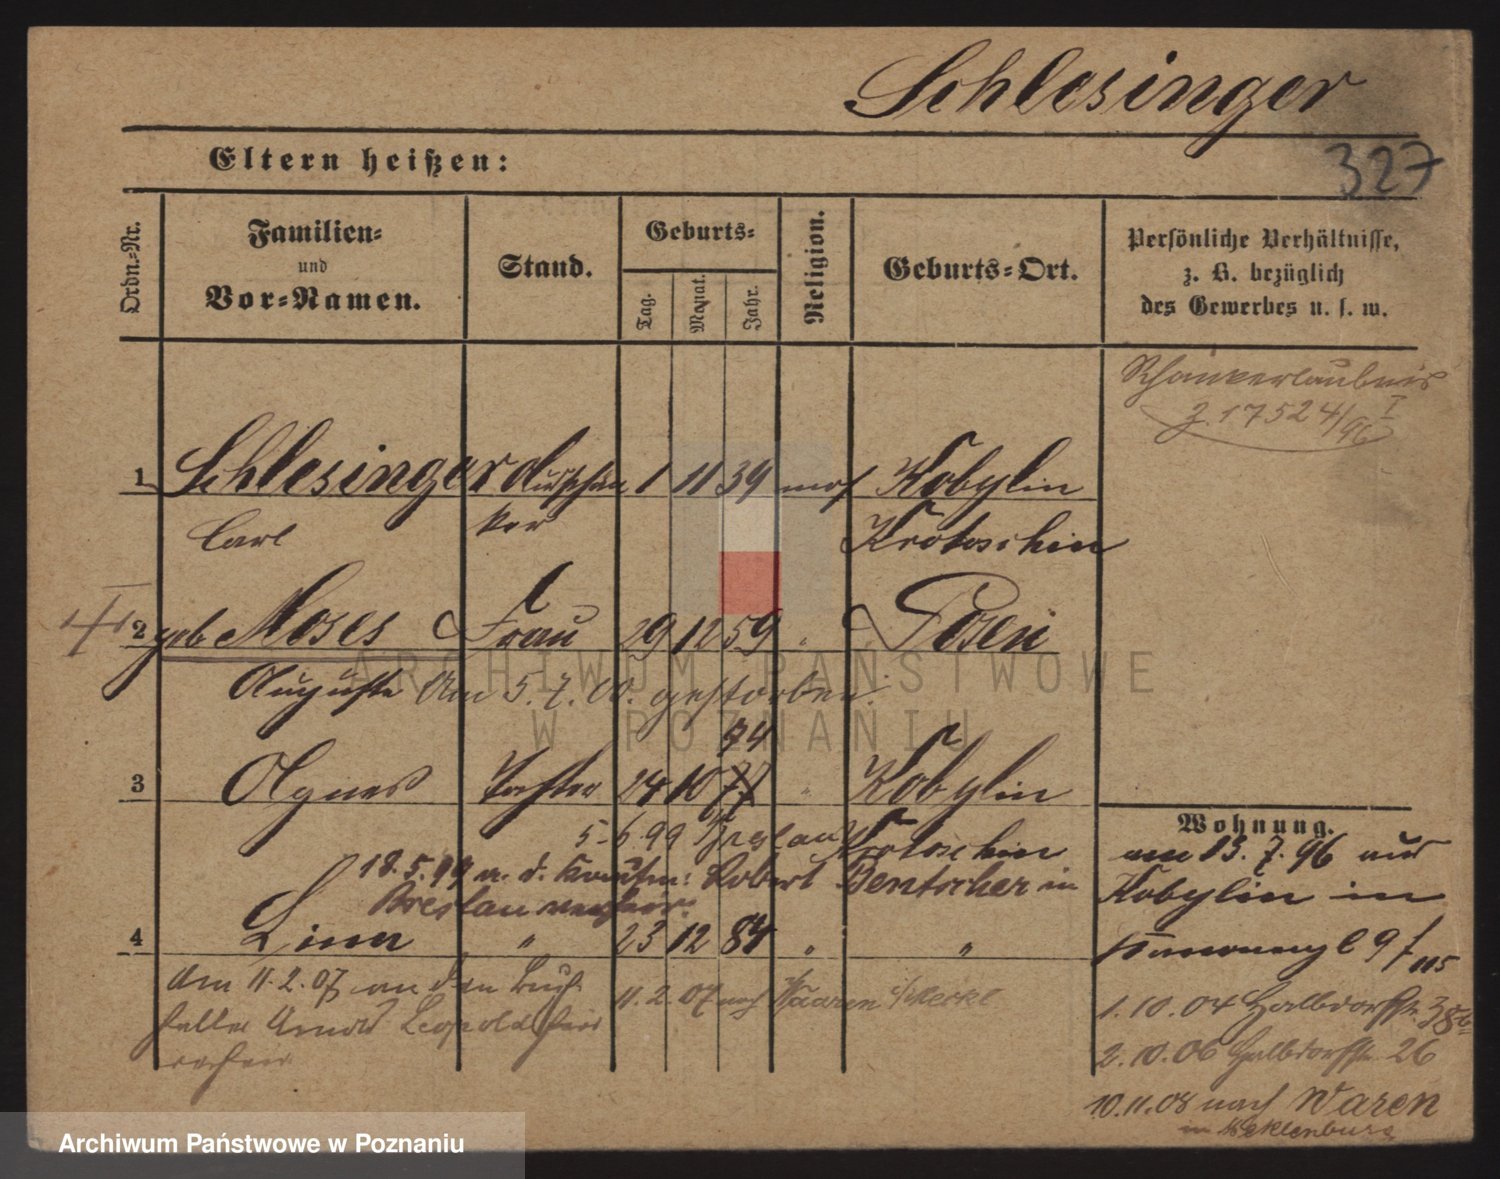 Schlesinger
327
Eltern heißen:
Ordn.-Nr.
Familien-
und
Vor-Namen.
Stand.
Geburts-
Tag.
Monat.
Jahr.
Religion.
Geburts-Ort.
Persönliche Verhältnisse,
z. B. bezüglich
des Gewerbes u. s. w.
Schankerlaubnis
I
3.17524/96
1 Schlesinger Ausschän 1 11 39 mos Kobylin
Carl ker Krotoschin
2 geb Moses Frau 29 12 59 " Posen
Auguste Am 5.7.00. gestorben.
74
3 Agnes Tochter 24 10 77 " Kobylin
5.6.99 Breslau Krotoschin
18.5.99 m. d. Kaufm: Robert Bentscher in
Breslau verheir.
4 " 23 12 84 " "
Am 11.2.07 an den Buch
halter Arnold Leopold
11.2.07 nach Waaren
Wohnung.
am 13.7.96 aus
Kobylin in
115
1.10.04 Halbdorfstr. 38b
2.10.06 Halbdorfstr. 26
10.11.08 nach Waren
in Mecklenburg
ARCHIWUM PAŃSTWOWE
W POZNANIU
Archiwum Państwowe w Poznaniu